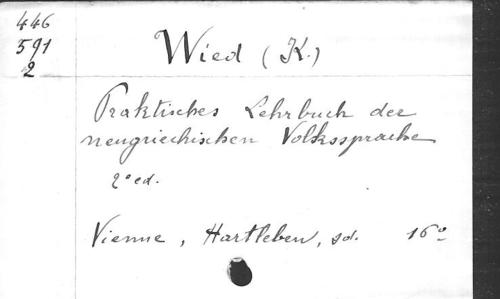 446
591
2
Wied (K.)
Praktisches Lehrbuch der
neugriechischen Volkssprache
2º ed.
Vienne, Hartleben, sd. 16º